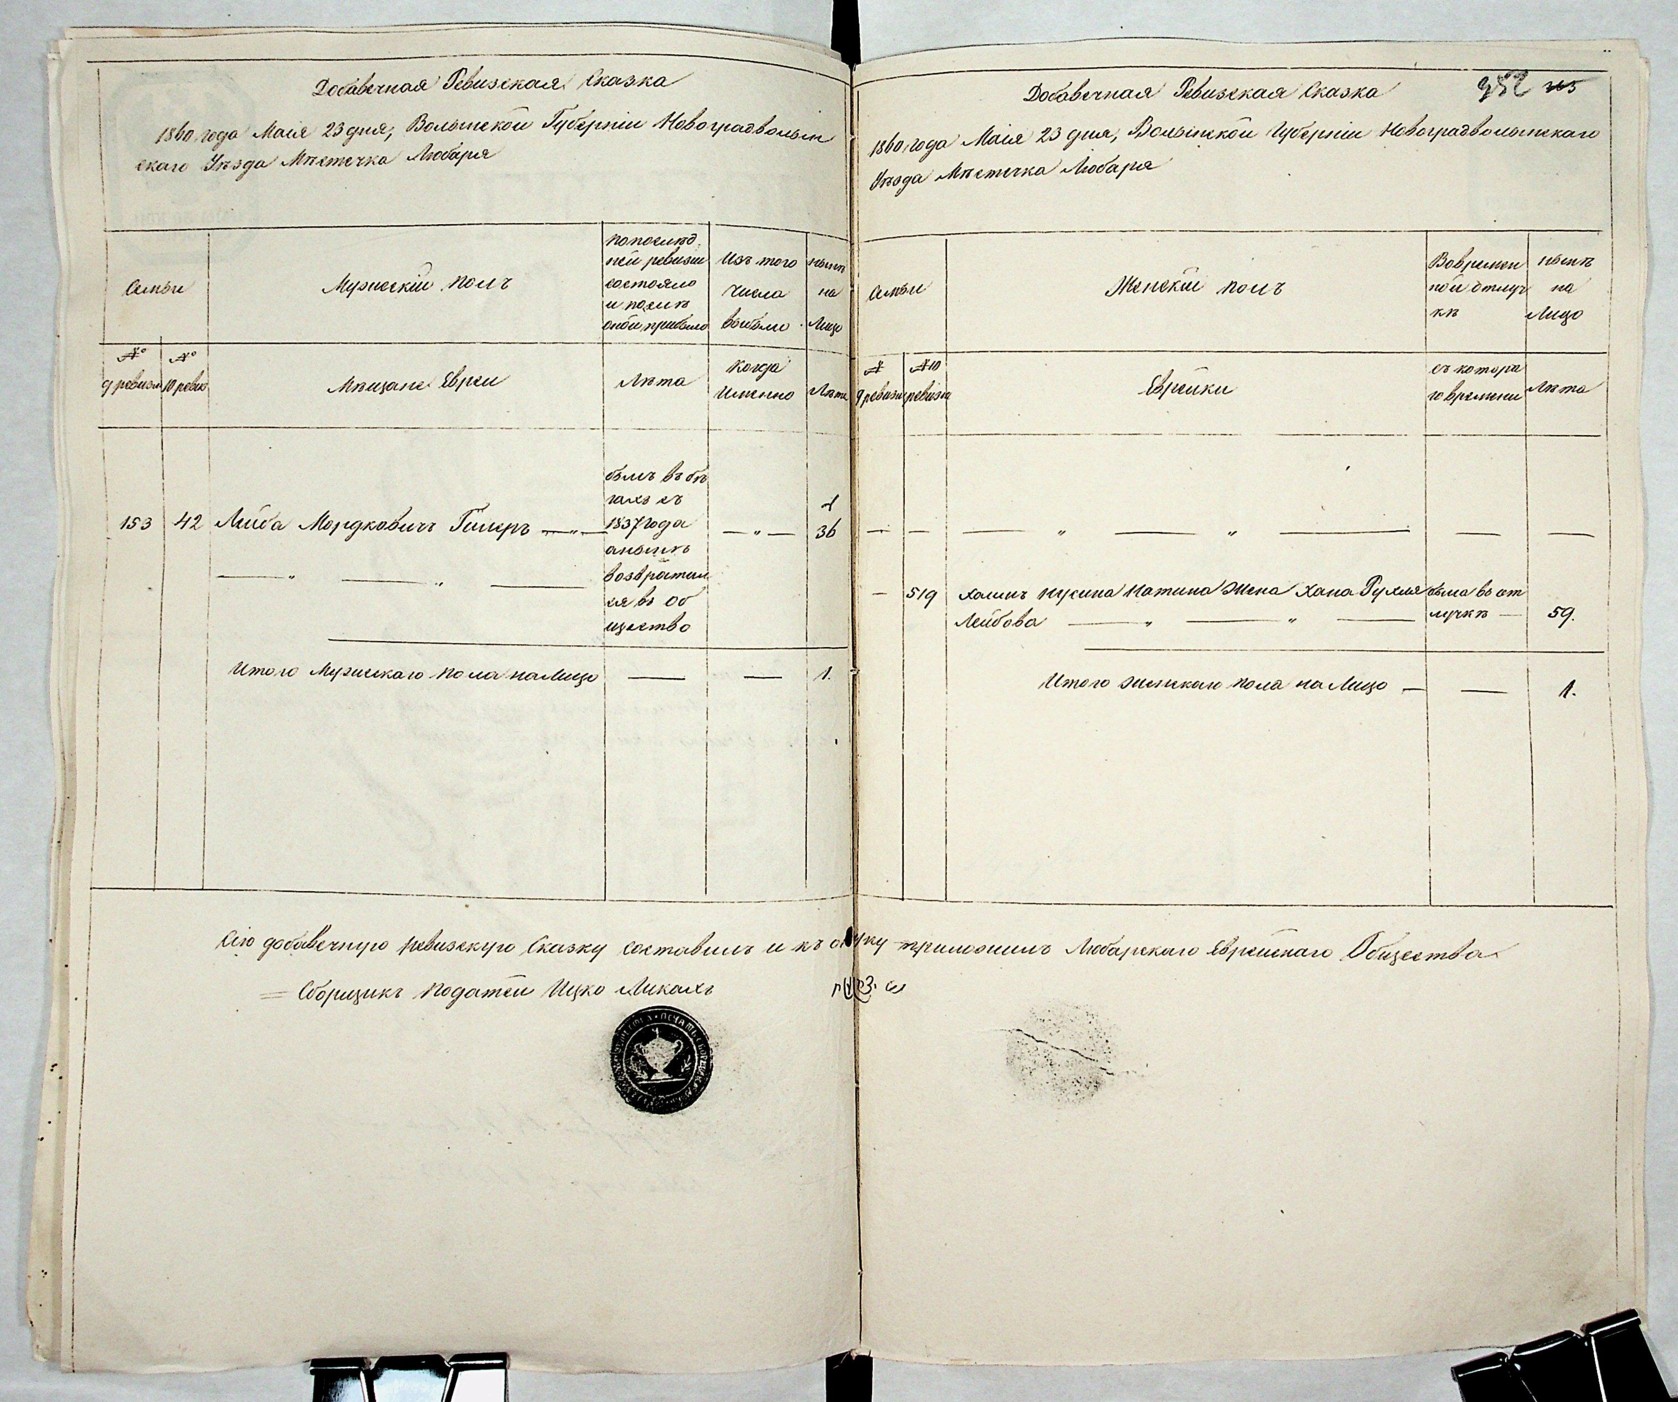 Добавочная Ревизская Сказка
1860 года Маія 23 дня, Волынской Губерніи Новоградволын
скаго Уѣзда Мѣстечка Любаря
Семьи
Мужескій полъ
попослѣд
ней ревизіи
состояло
и послѣ
оной прибыло
Изъ того
числа
выбыло
нынѣ
на
Лицо
№
9 ревизіи
№
10 ревиз
Мѣщане Евреи
Лѣта
Когда
Именно
Лѣта
153 42 Лейба Мордковичъ Гилеръ — „ —
былъ въ бѣ
гахъ съ
1837 года
а нынѣ
возвратил
ся въ Об
щество
— „ —
36
Итого Мужескаго пола на Лицо — — 1.
Добавочная Ревизская Сказка
352
1860 года Маія 23 дня, Волынской Губерніи Новоградволынскаго
Уѣзда Мѣстечка Любаря
Семьи
Женскій полъ
Во времен
ной отлуч
кѣ
нынѣ
на
Лицо
№
9 ревизіи
№ 10
ревизіи
Еврейки
съ котора
го времени
Лѣта
— — — „ — „ — — —
— 519 Нусина Жена Хана Рухля
Лейбова — „ — „ —
была въ от
лучкѣ —
59.
Итого женскаго пола на Лицо — — 1.
Сію добавочную ревизскую Сказку составилъ и къ оной руку приложилъ Любарскаго Еврейскаго Общества
Сборщикъ податей Ицко